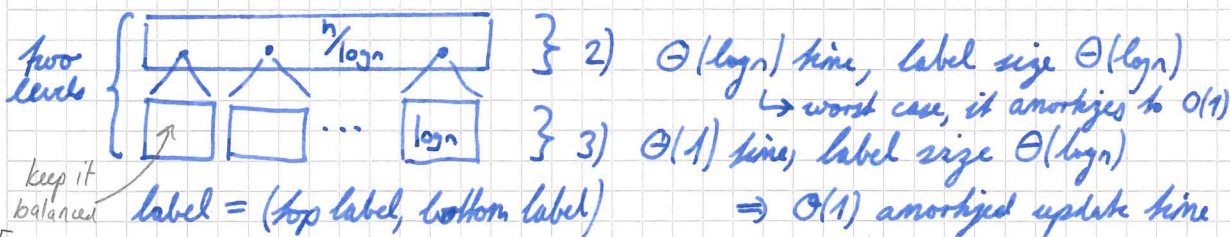 n/logn } 2) Θ(logn) time, label size Θ(logn)
two levels
↳ worst case, it amortizes to O(1)
... logn } 3) Θ(1) time, label size Θ(logn)
keep it balanced
label = (top label, bottom label) ⇒ O(1) amortized update time